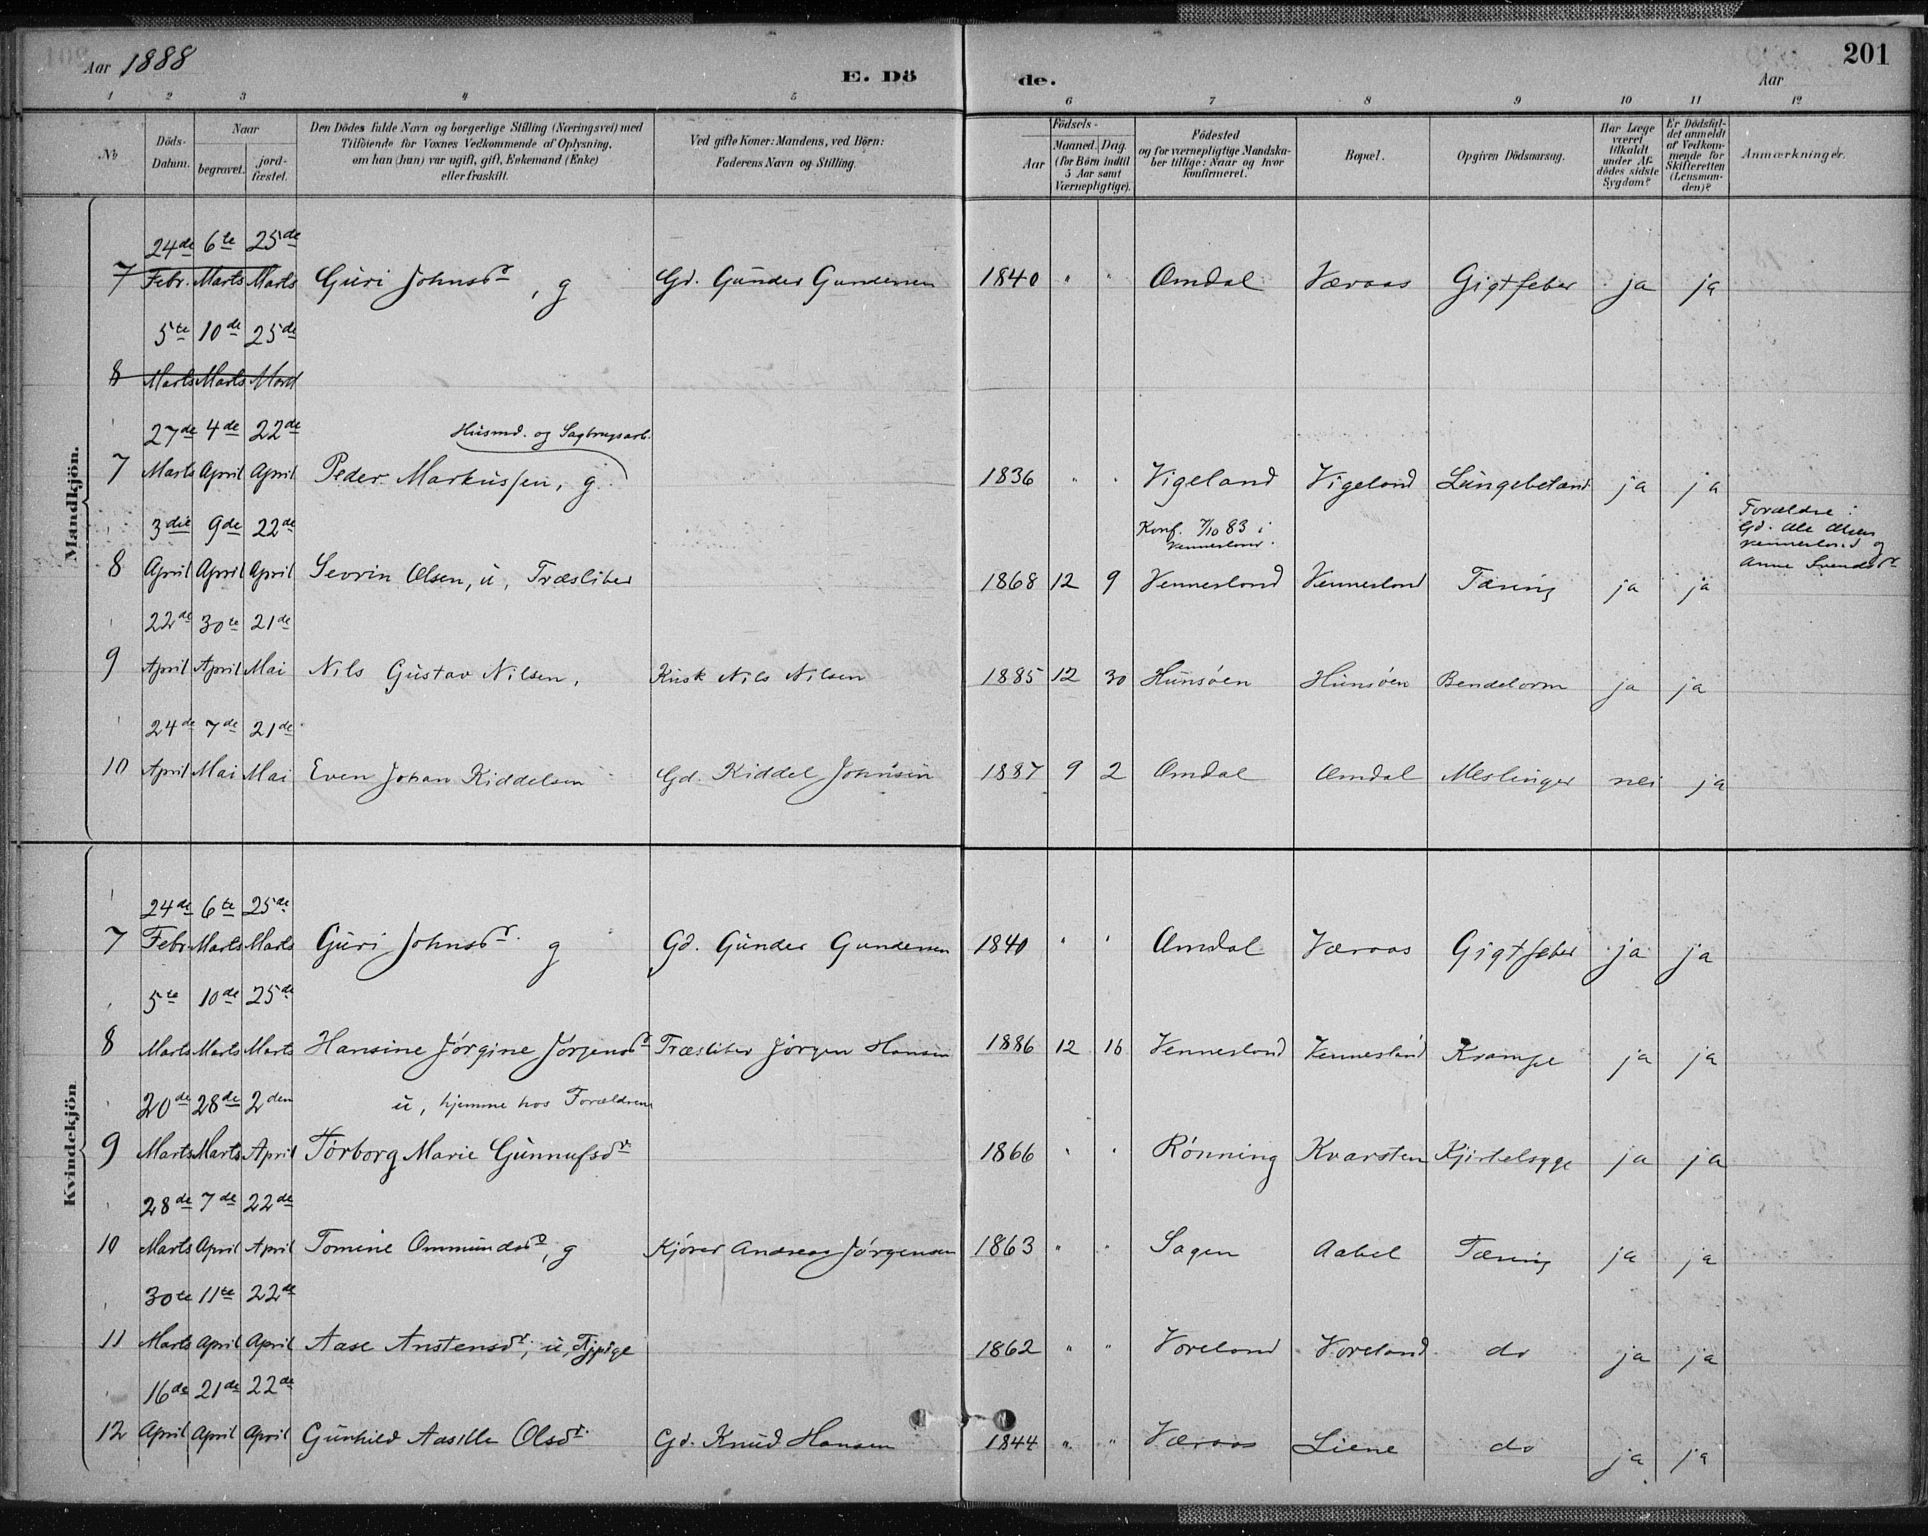 Aar 1888
E. Dö
de.
Aar
201
1 2 3 4 5 6 7 8 9 10 11 12
No
Döds-Datum.
Naar
begravet.
jordfæstet.
Den Dödes fulde Navn og borgerlige Stilling (Næringsvei) med
Tilföiende for Voxnes Vedkommende af Oplysning,
om han (hun) var ugift, gift, Enkemand (Enke)
eller fraskilt.
Ved gifte Koner: Mandens, ved Börn:
Faderens Navn og Stilling.
Födsels-
Aar
Maaned. Dag.
(for Börn indtil
5 Aar samt
Værnepligtige).
Födested
og for værnepligtige Mandska-
ber tillige: Naar og hvor
konfirmeret.
Bopæl.
Opgiven Dödsaarsag.
Har Læge
været
tilkaldt
under Af-
dödes sidste
Sygdom?
Er Dödsfal-
det anmeldt
af Vedkom-
mende for
Skifteretten
(Lensman-
den)?
Anmærkninger.
Mandkjön.
24de 6te 25de
7 Febr. Marts Marts Guri Johnsdr, g Gd. Gunder Gundersen 1840 " " Omdal Væraas Gigtfeber ja ja
5te 10de 25de
8 Marts Marts Marts
27de 4de 22de Husmd. og Sagbrugsarb.
7 Marts April April Peder Markussen, g. 1836 " " Vigeland Vigeland Lungebetænd ja ja
3die 9de 22de Konf. 7/10 83 i Vennesland. Forældre: Gd. Ole Olsen Vennesland og Anne Svendsdr
8 April April April Sevrin Olsen, u, Træsliber 1868 12 9 Vennesland Vennesland Tæring ja ja
22de 30te 21de
9 April April Mai Nils Gustav Nilsen, Kusk Nils Nilsen 1885 12 30 Hunsøen Hunsøen Bendelorm ja ja
24de 7de 21de
10 April Mai Mai Even Johan Kiddelsen Gd. Kiddel Johnsen 1887 9 2 Omdal Omdal Meslinger nei ja
Kvindekjön
24de 6te 25de
7 Febr. Marts Marts Guri Johnsdr. g Gd. Gunder Gundersen 1840 " " Omdal Væraas Gigtfeber ja ja
5te 10de 25de
8 Marts Marts Marts Hansine Jørgine Jørgensdr Træsliber Jørgen Hansen 1886 12 16 Vennesland Vennesland Krampe ja ja
20de 28de 2den u, hjemme hos Forældrene
9 Marts Marts April Tørborg Marie Gunnufsdr 1866 " " Rønning Kvarsten Kjirtelsyge ja ja
28de 7de 22de
10 Marts April April Tomine Ommundsdr, g Kjører Andreas Jørgensen 1863 " " Sagen Aabel Tæring ja ja
30te 11te 22de
11 Marts April April Aase Anstensdr, u, Tjpige 1862 " " Voreland Voreland do ja ja
16de 21de 22de
12 April April April Gunhild Aasille Olsdr. Gd. Knud Hansen 1844 " " Væraas Liene do ja ja